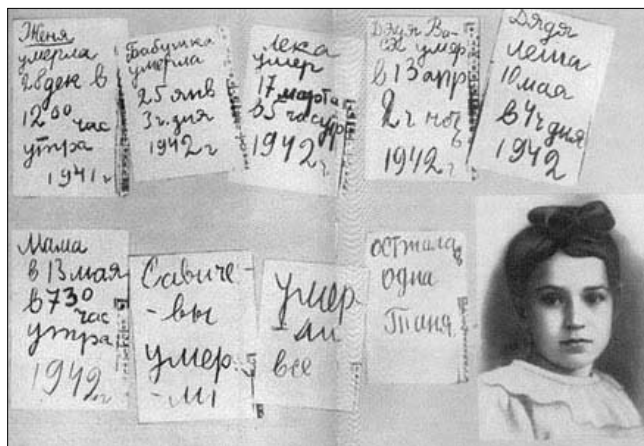 Женя
умерла
28 дек в
12 00 час
утра
1941 г
Бабушка
умерла
25 янв
3 ч. дня
1942 г
Лека
умер
17 марта
в 5 час утр
1942 г.
Дядя Ва-
ся умер
в 13 апр
2 ч ночь
1942 г
Дядя
Леша
10 мая
в 4 ч дня
1942
Мама
в 13 мая
в 7 30
час
утра
1942 г
Савиче-
-вы
умер-
-ли
умер
-ли
все
осталась
одна
Таня